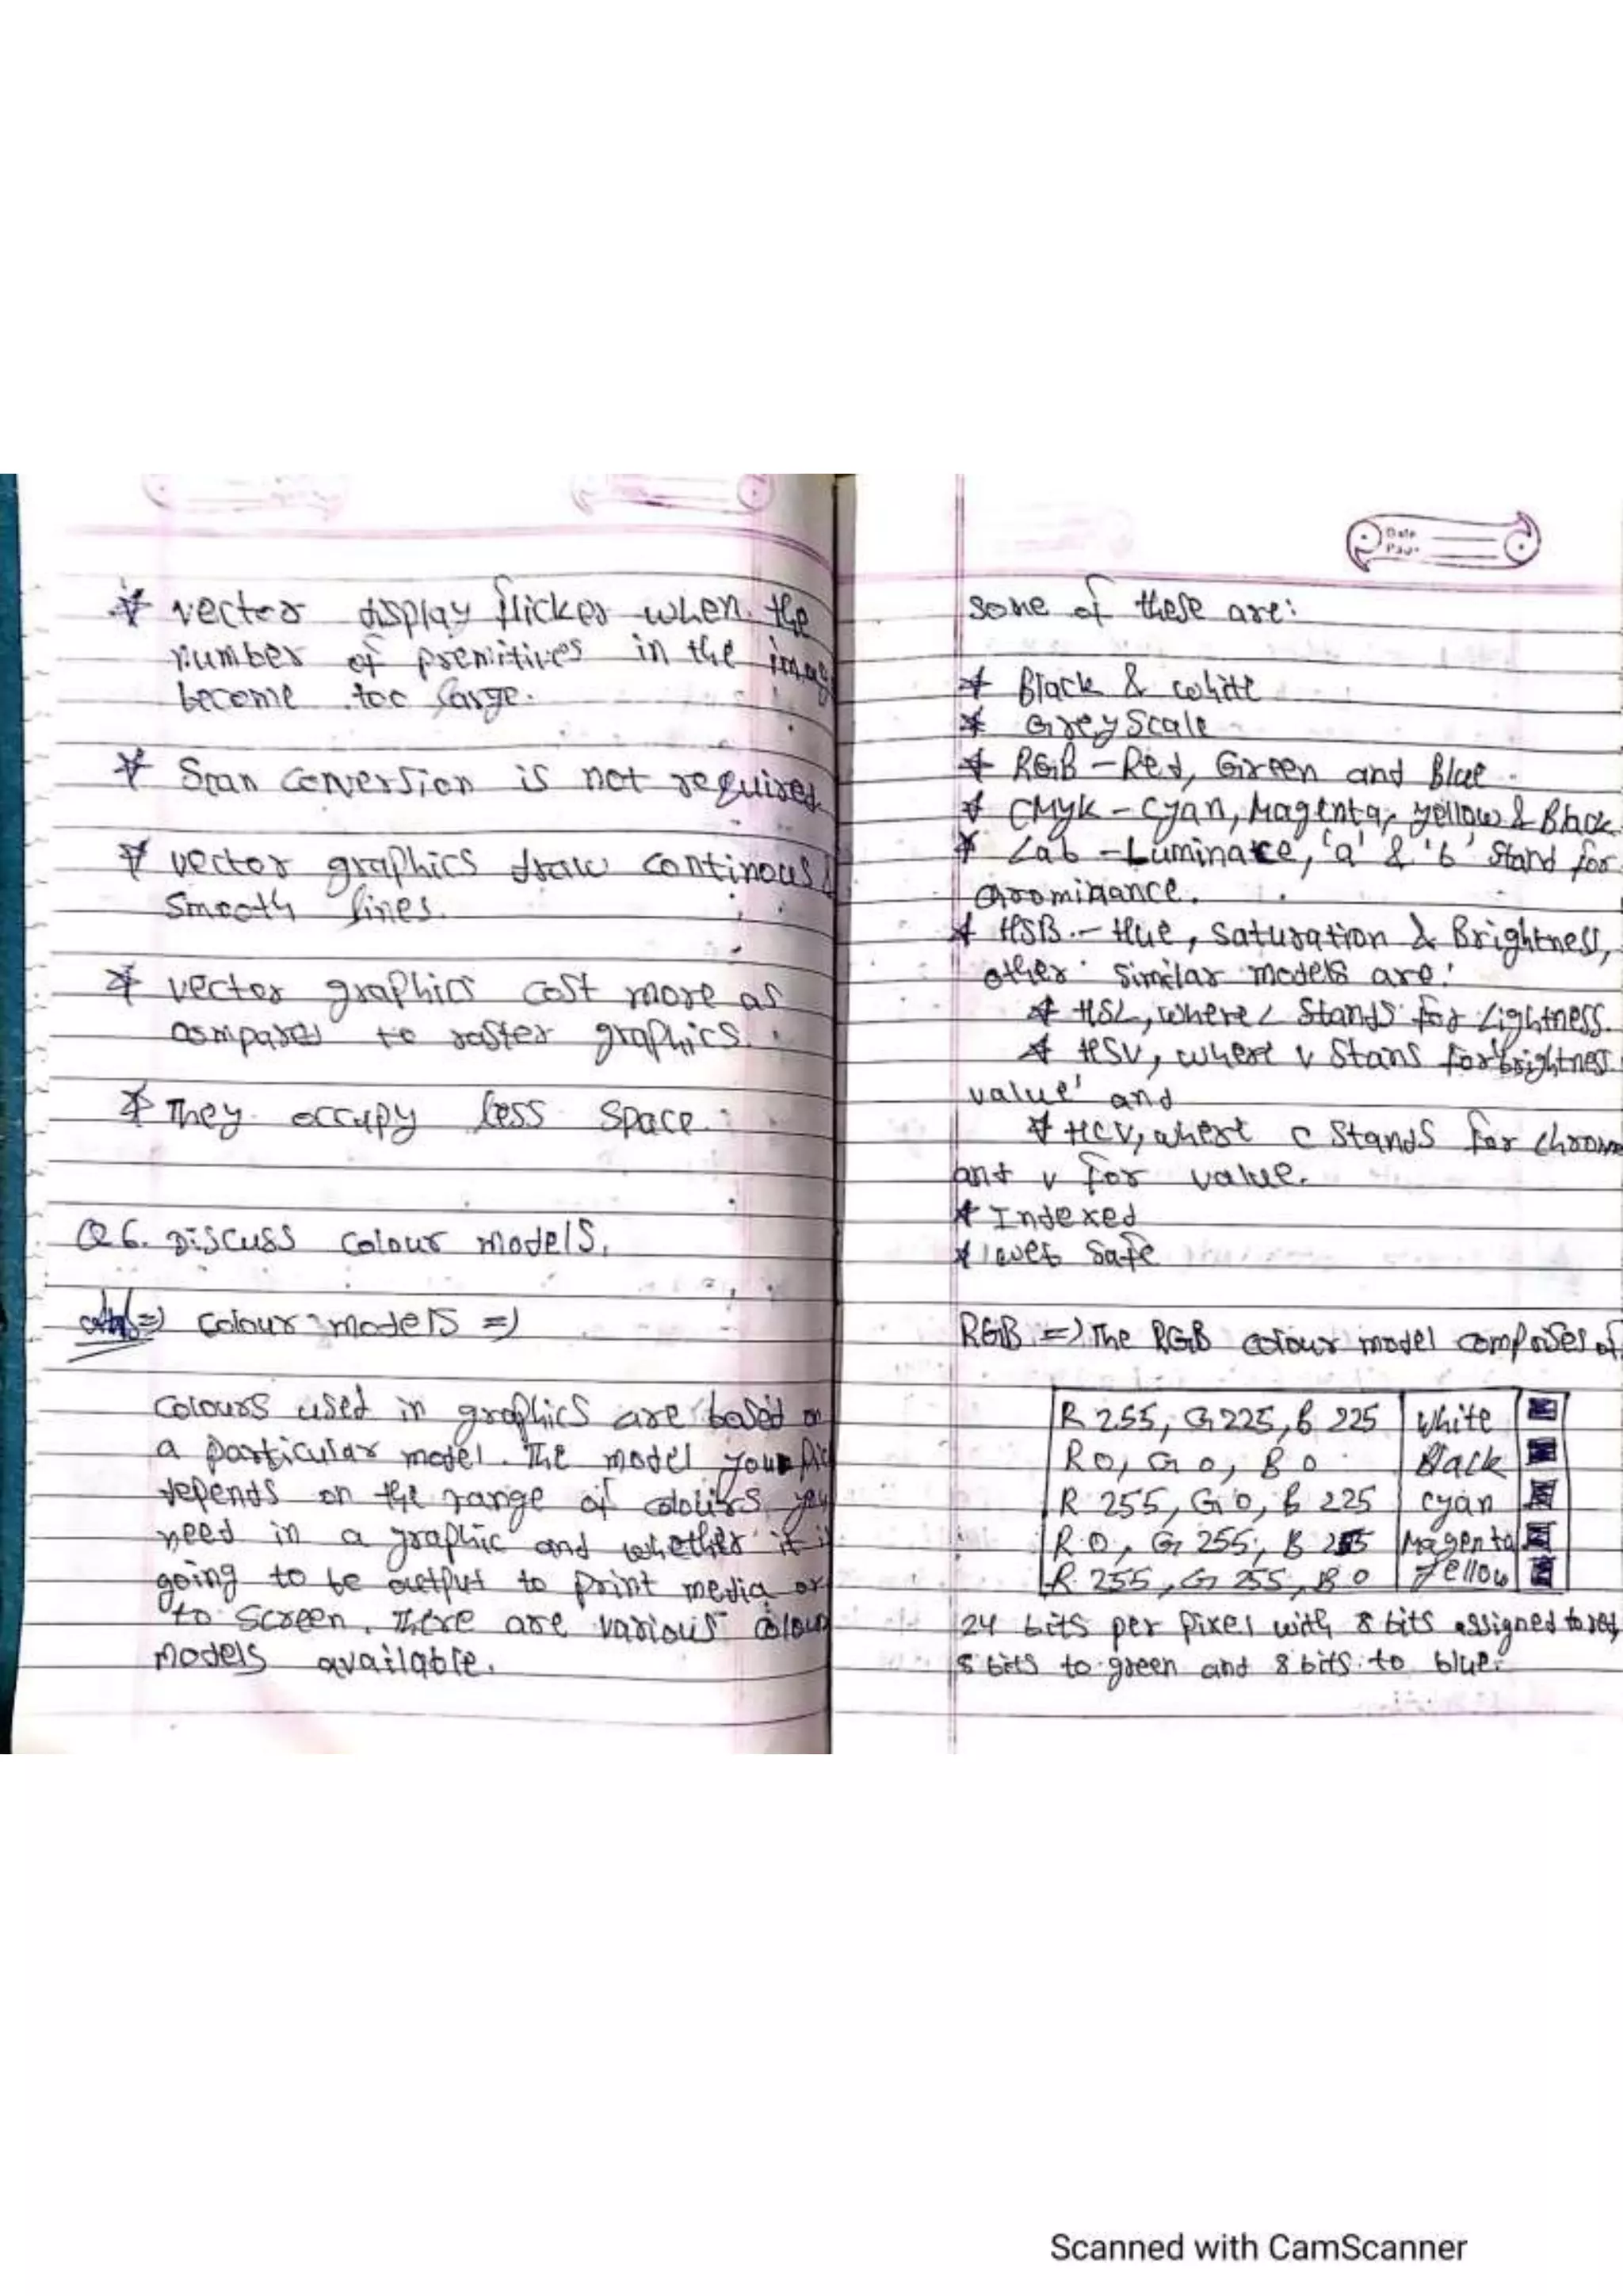 * vector display flicker when the
number of premitives in the imag
become too large.
* Scan conversion is not required
* vector graphics draw continous &
smooth lines.
* vector graphics cost more as
compared to raster graphics.
* They occupy less space.
Q6. Discuss colour models.
=) colour models =)
colours used in graphics are based on
a particular model. The model you pic
depends on the range of colours you
need in a graphic and whether it i
going to be output to print media or
to screen. There are various colour
models available.
Date
Page
some of these are:
* Black & white
* Grey Scale
* RGB - Red, Green and Blue
* CMyk - Cyan, Magenta, yellow & Black
* Lab - Luminance, 'a' & 'b' stand for
chrominance.
* HSB - Hue, saturation & Brightness,
other similar models are:
* HSL, where L stands for Lightness.
* HSV, where v stans for 'brightness
value' and
* HCV, where C stands for chrom
and v for value.
* Indexed
* web safe
RGB =) The RGB colour model composes of
R 255, G 225, B 225 white
R 0, G 0, B 0 Black
R 255, G 0, B 225 cyan
R 0, G 255, B 255 Magenta
R 255, G 255, B 0 yellow
24 bits per pixel with 8 bits assigned to red,
8 bits to green and 8 bits to blue.
Scanned with CamScanner